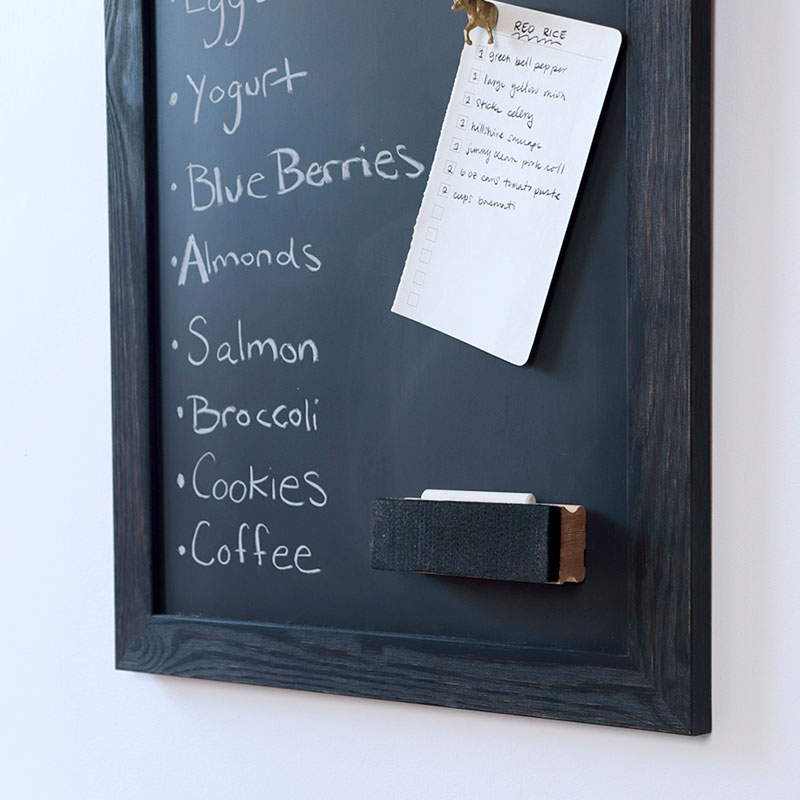 • Eggs
• Yogurt
• Blue Berries
• Almonds
• Salmon
• Broccoli
• Cookies
• Coffee
RED RICE
1 green bell pepper
1 large yellow onion
2 sticks celery
2 hillshire sausage
2 jimmy dean pork roll
2 6 oz cans tomato paste
2 cups basmati